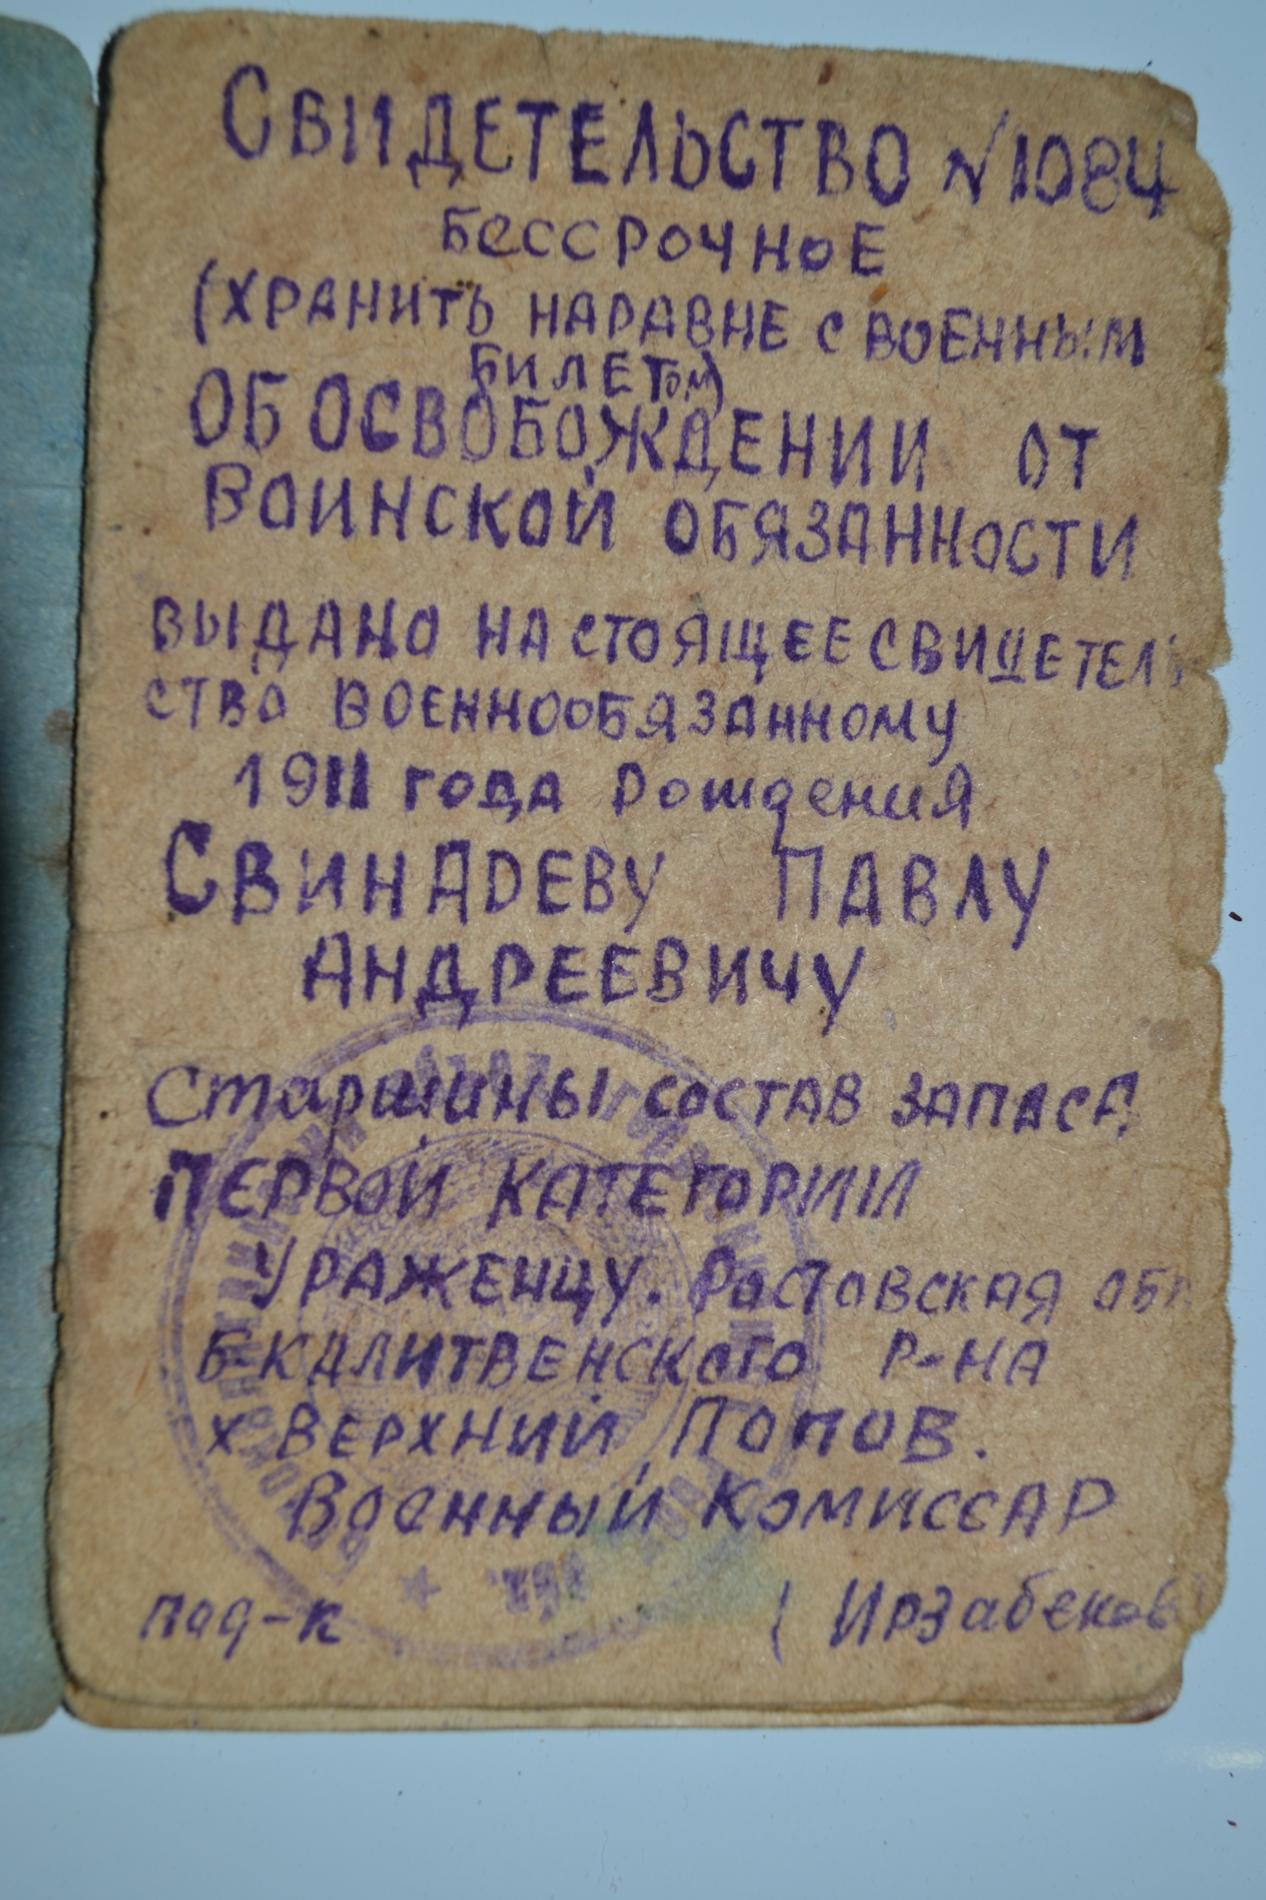 СВИДЕТЕЛЬСТВО №1084
БЕССРОЧНОЕ
(ХРАНИТЬ НАРАВНЕ С ВОЕННЫМ
БИЛЕТОМ)
ОБ ОСВОБОЖДЕНИИ ОТ
ВОИНСКОЙ ОБЯЗАННОСТИ
ВЫДАНО НАСТОЯЩЕЕ СВИДЕТЕЛЬ
СТВО ВОЕННООБЯЗАННОМУ
1911 года рождения
СВИНАРЕВУ ПАВЛУ
АНДРЕЕВИЧУ
Старшины СОСТАВ ЗАПАСА
ПЕРВОЙ КАТЕГОРИИ
УРАЖЕНЦУ. РОСТОВСКАЯ ОБЛ
Б-КАЛИТВЕНСКОГО Р-НА
Х ВЕРХНИЙ ПОПОВ.
ВОЕННЫЙ КОМИССАР
под-к (Ирзабеков